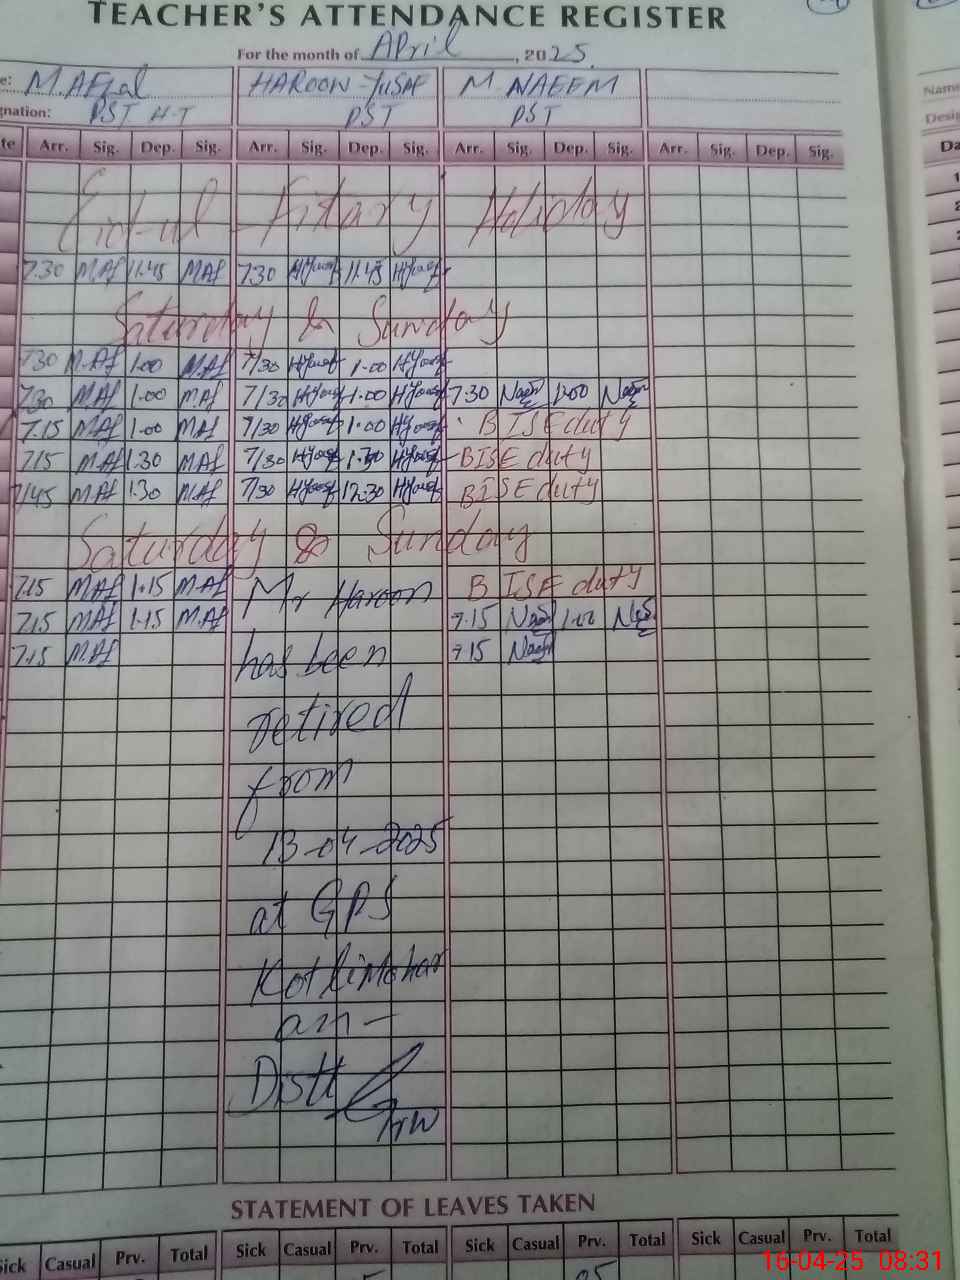 TEACHER'S ATTENDANCE REGISTER
For the month of April, 2025.
e: M. Afzal HAROON-YUSAF M. NAEEM
gnation: PST H-T PST PST
te Arr. Sig. Dep. Sig. Arr. Sig. Dep. Sig. Arr. Sig. Dep. Sig. Arr. Sig. Dep. Sig.
Eid-ul Fitary Holiday
7.30 M.Af 11.45 M.Af 7.30 HYousf 11.45 HYousf
Saturday & Sunday
7.30 M.Af 1.00 M.Af 7/30 HYousf 1.00 HYousf
7.30 M.Af 1.00 M.Af 7/30 HYousf 1.00 HYousf 7.30 Naeem 1.00 Naeem
7.15 M.Af 1.00 M.Af 7/30 HYousf 1.00 HYousf BISE duty
7.15 M.Af 1.30 M.Af 7/30 HYousf 1.30 HYousf BISE duty
7/45 M.Af 1.30 M.Af 7/30 HYousf 12.30 HYousf BISE duty
Saturday & Sunday
7.15 M.Af 1.15 M.Af Mr Haroon BISE duty
7.15 M.Af 1.15 M.Af 7.15 Naeem 1.00 Naeem
7.15 M.Af has been 7.15 Naeem
retired
from
13-04-2025
at GPS
Kotlimohar
an-
Distt
STATEMENT OF LEAVES TAKEN
Sick Casual Prv. Total Sick Casual Prv. Total Sick Casual Prv. Total Sick Casual Prv. Total
Name
Desig
Da
1
2
16-04-25 08:31